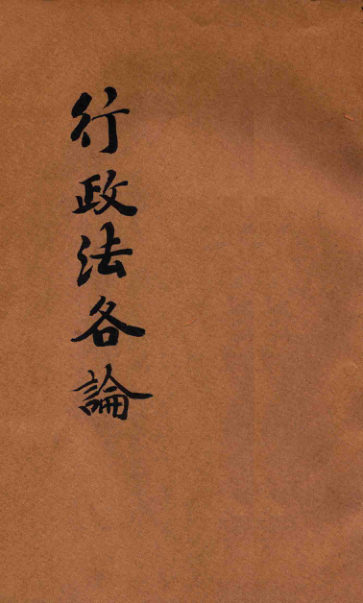 行政法各論